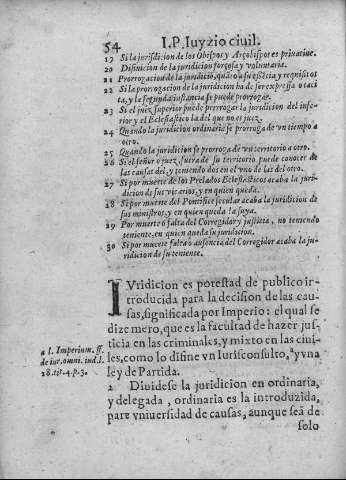 54 I.P. Iuyzio ciuil.
19 Si la jurisdicion de los Obispos y Arçobispos es priuatiue.
20 Difinicion de la juridicion forçosa y voluntaria.
21 Prorrogacion de la juridició, quãto a su essècia y requisitos
22 Si la prorogacion de la juridicion ha de ser expressa o taci
ta, y la segunda instancia se puede prorrogar.
23 Si el juez superior puede prerrogar la juridicion del infe-
rior y el Eclesiastico la del que no es juez.
24 Quando la juridicion ordinaria se prorroga de vn tiempo a
otro.
25 Quando la juridicion se prorroga de vn territorio a otro.
26 Si el señor o juez, fuera de su territorio puede conocer de
las causas del, y teniendo dos en el vno de las del otro.
27 Si por muerte de los Prelados Eclesiasticos acaba la juri-
dicion de sus vicarios, y en quien queda.
28 Si por muerte del Pontifice secular acaba la juridicion de
sus ministros, y en quien queda la suya.
29 Por muerte o falta del Corregidor y justicia, no teniendo
teniente, en quien queda su juridicion.
30 Si por muerte falta o ausencia del Corregidor acaba la ju-
ridicion de su teniente.
IVridicion es potestad de publico in-
troducida para la decision de las cau-
sas, significada por Imperio: el qual se
dize mero, que es la facultad de hazer jus-
ticia en las criminales, y mixto en las ciui-
les, como lo difine vn Iurisconsulto, ª y vna
ley de Partida.
a l. Imperium. ff.
de iur. omni. iud. l.
18. tit. 4. p. 3.
2 Diuidese la juridicion en ordinaria,
y delegada, ordinaria es la introduzida,
para vniuersidad de causas, aunque sea de
solo